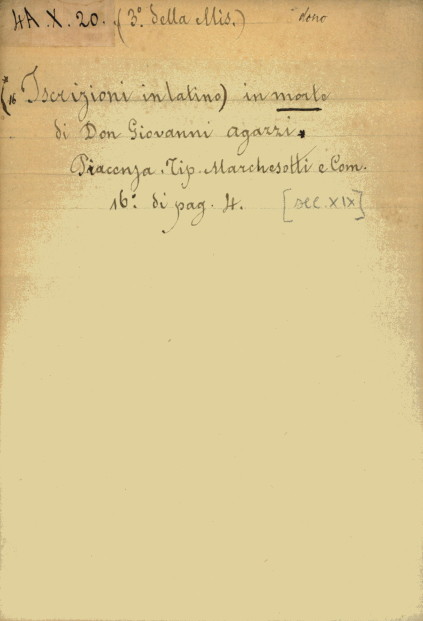 4A.X.20. (3°. della Mis.) dono
(* Iscrizioni in latino) in morte
di Don Giovanni Agazzi.
Piacenza. Tip. Marchesotti e Com.
16°. di pag. 4. [sec. XIX]